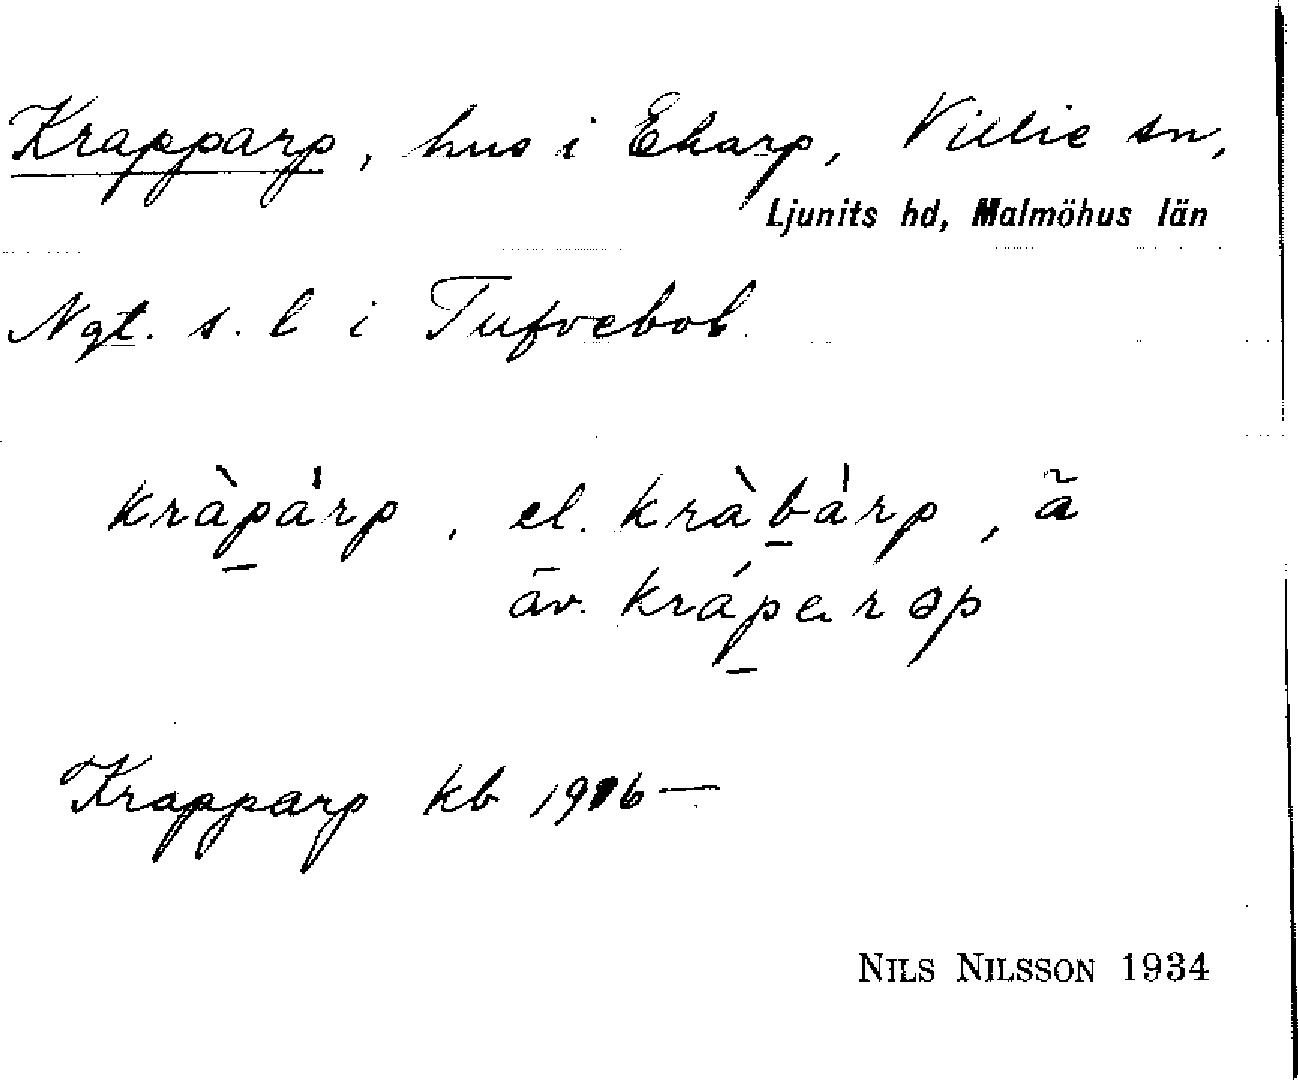 Krapparp, hus i Ekarp, Villie sn,
Ljunits hd, Malmöhus län
Ngt. s. l i Tufvebol.
kràpárp, el. kràbárp, ã
äv. kráparəp
Krapparp kb 1916—
NILS NILSSON 1934